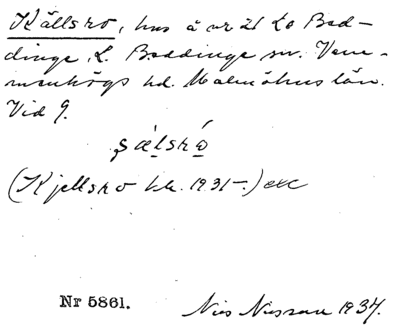 Källsro, hus å nr 21 Lo Bed-
dinge, L. Beddinge sn. Vem-
menhögs hd. Malmöhus län.
Vid 9.
(Kjellsro kk. 1931–.) exc
Nr 5861.
Nils Nilsson 1937.